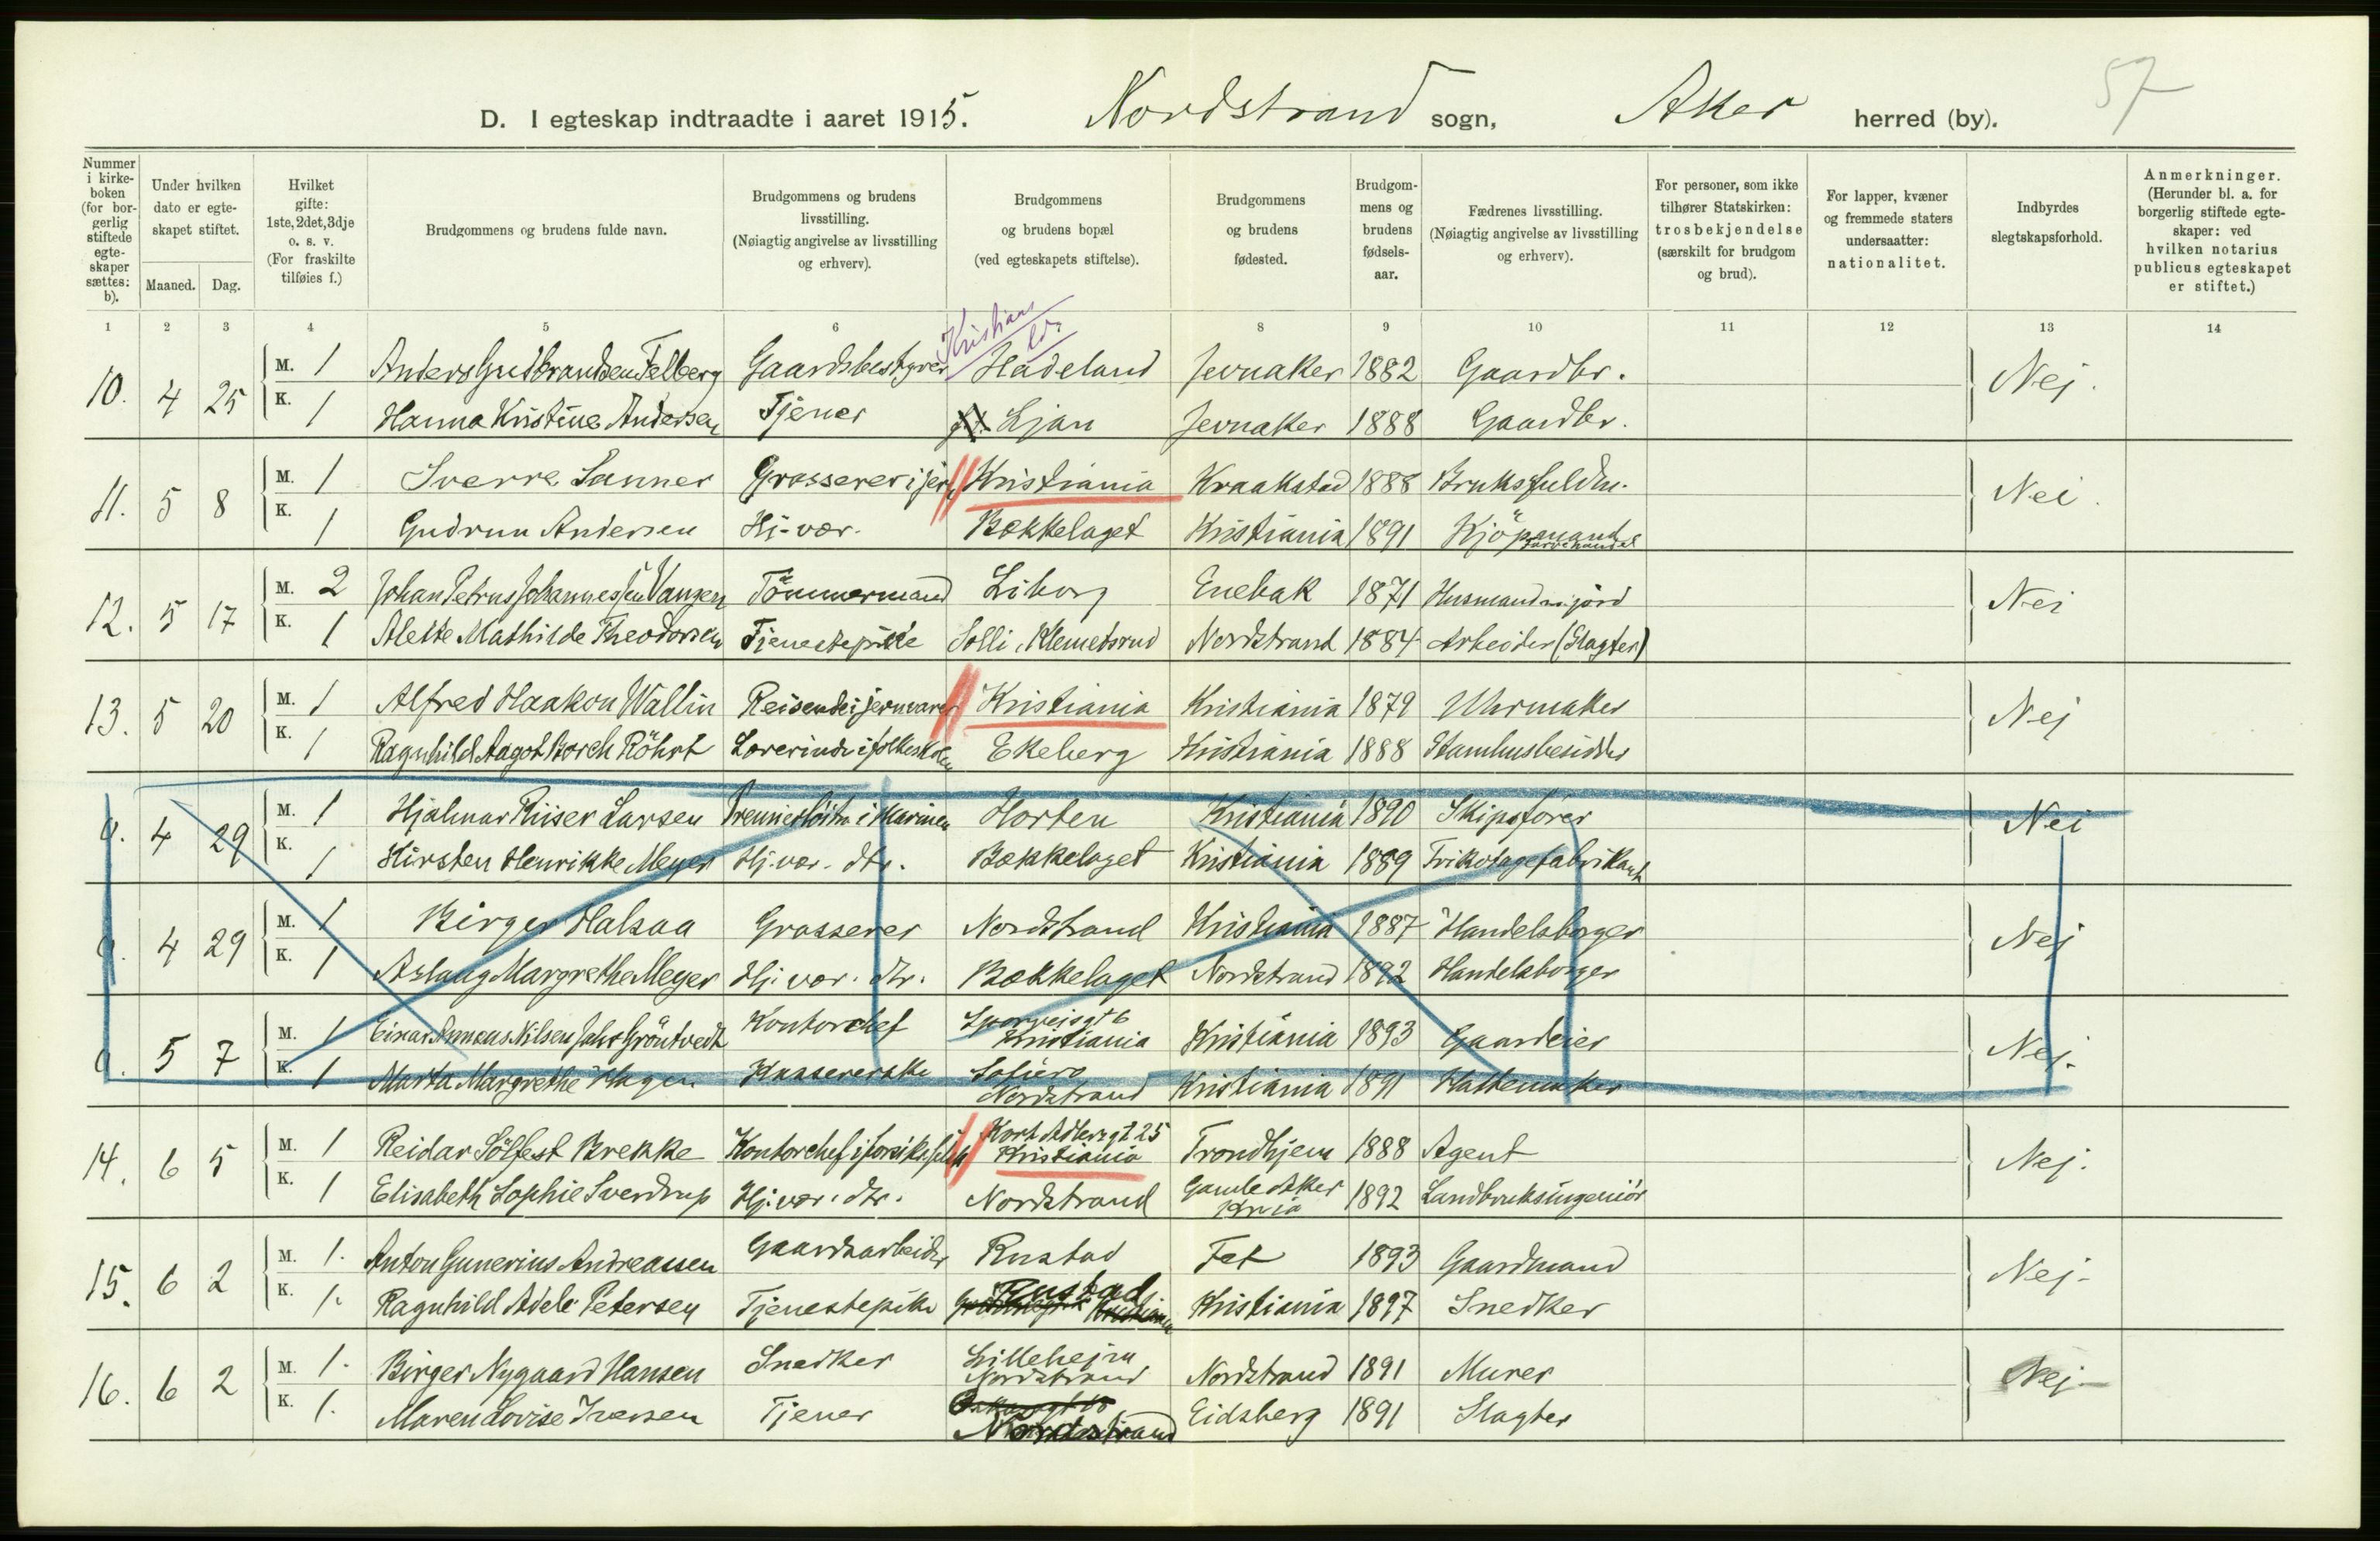 57
D. I egteskap indtraadte i aaret 1915. Nordstrand sogn, Aker herred (by).
Nummer i kirke-boken (for bor-gerlig stiftede egte-skaper sættes: b).
Under hvilken dato er egte-skapet stiftet.
Maaned. Dag.
Hvilket gifte: 1ste, 2det, 3dje o. s. v. (For fraskilte tilføies f.)
Brudgommens og brudens fulde navn.
Brudgommens og brudens livsstilling. (Nøiagtig angivelse av livsstilling og erhverv).
Brudgommens og brudens bopæl (ved egteskapets stiftelse).
Brudgommens og brudens fødested.
Brudgom-mens og brudens fødsels-aar.
Fædrenes livsstilling. (Nøiagtig angivelse av livsstilling og erhverv).
For personer, som ikke tilhører Statskirken: trosbekjendelse (særskilt for brudgom og brud).
For lapper, kvæner og fremmede staters undersaatter: nationalitet.
Indbyrdes slegtskapsforhold.
Anmerkninger. (Herunder bl. a. for borgerlig stiftede egte-skaper: ved hvilken notarius publicus egteskapet er stiftet.)
1 2 3 4 5 6 8 9 10 11 12 13 14
Kristians
10. 4 25 M. 1 Anders Gudbrandsen Felberg Gaardsbestyrer Hadeland Jevnaker 1882 Gaardbr. Nej.
K. 1 Hanna Kristine Andersen Tjener Ljan Jevnaker 1888 Gaardbr.
11. 5 8 M. 1 Sverre Sanner Grosserer i jern Kristiania Kraakstad 1888 Bruksfuldm. Nei.
K. 1 Gudrun Andersen Hj-vær. Bækkelaget Kristiania 1891 Kjöpmand
12. 5 17 M. 2 Johan Petrus Johannessen Vangen Tömmermand Liborg Enebak 1871 Husmand m. jord Nei
K. 1 Alette Mathilde Theodorsen Tjenestepike Solli, Klemetsrud Nordstrand 1884 Arbeider (Slagter)
13. 5 20 M. 1 Alfred Haakon Wallin Reisende i jernvarer Kristiania Kristiania 1879 Uhrmaker Nej
K. 1 Ragnhild Aagot Borch Röhrt Lærerinde i folkeskolen Ekeberg Kristiania 1888 Stamhusbesidder
0. 4 29 M. 1 Hjalmar Riiser Larsen Premierlöitn. i Marinen Horten Kristiania 1890 Skipsförer Nei
K. 1 Kirsten Henrikke Meyer Hj. vær. dtr. Bækkelaget Kristiania 1889 Trikotagefabrikant
0. 4 29 M. 1 Birger Halsaa Grosserer Nordstrand Kristiania 1887 Handelsborger Nej
K. 1 Aslaug Margrethe Meyer Hj. vær. dtr. Bækkelaget Nordstrand 1892 Handelsborger
0. 5 7 M. 1 Einar Nilsen Gröntvedt Kontorchef Sporveisgt 6 Kristiania Kristiania 1893 Gaardeier Nej.
K. 1 Marta Margrethe Hagen Kassererske Soliero Nordstrand Kristiania 1891 Hattemaker
14. 6 5 M. 1 Reidar Sölfest Brekke Kontorchef i forsikr.selsk Kort Adlersgt 25 Kristiania Trondhjem 1888 Agent Nej.
K. 1 Elisabeth Sophie Sverdrup Hj. vær. dtr. Nordstrand Gamle Aker Kr.ia 1892 Landbruksingeniör
15. 6 2 M. 1. Anton Gunerius Andreassen Gaardsarbeider Rustad Fet 1893 Gaardmand Nej-
K. 1. Ragnhild Adele Petersen Tjenestepike Rustad Kristiania 1897 Snedker
16. 6 2 M. 1. Birger Nygaard Hansen Snedker Lillehejm Nordstrand Nordstrand 1891 Murer Nej-
K. 1. Maren Lovise Iversen Tjener Nordstrand Eidsberg 1891 Slagter